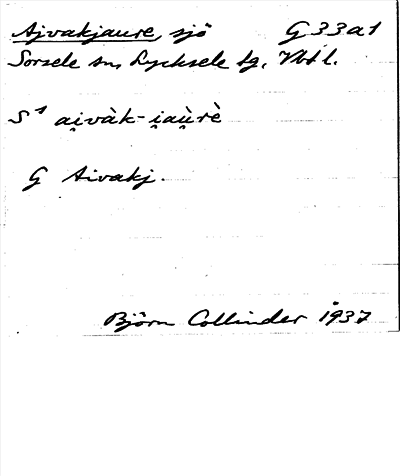 Ajvakjaure, sjö G 33a1
Sorsele sn, Lycksele lg, Vbtl.
S¹ ai̯vàk-i̯au̯rè
G Aivakj.
Björn Collinder 1937